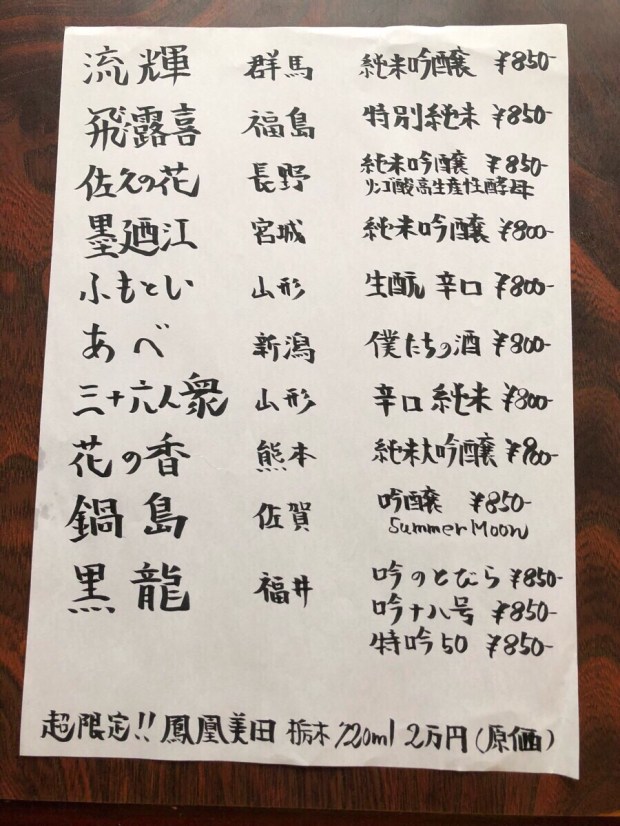 流輝 群馬 純米吟醸 ¥850-
飛露喜 福島 特別純米 ¥850-
佐久の花 長野 純米吟醸 ¥850-
リンゴ酸高生産性酵母
墨廼江 宮城 純米吟醸 ¥800-
ふもとい 山形 生酛 辛口 ¥800-
あべ 新潟 僕たちの酒 ¥800-
三十六人衆 山形 辛口 純米 ¥800-
花の香 熊本 純米大吟醸 ¥900-
鍋島 佐賀 吟醸 ¥850-
Summer Moon
黒龍 福井 吟のとびら ¥850-
吟十八号 ¥850-
特吟50 ¥850-
超限定!! 鳳凰美田 栃木 720ml 2万円(原価)